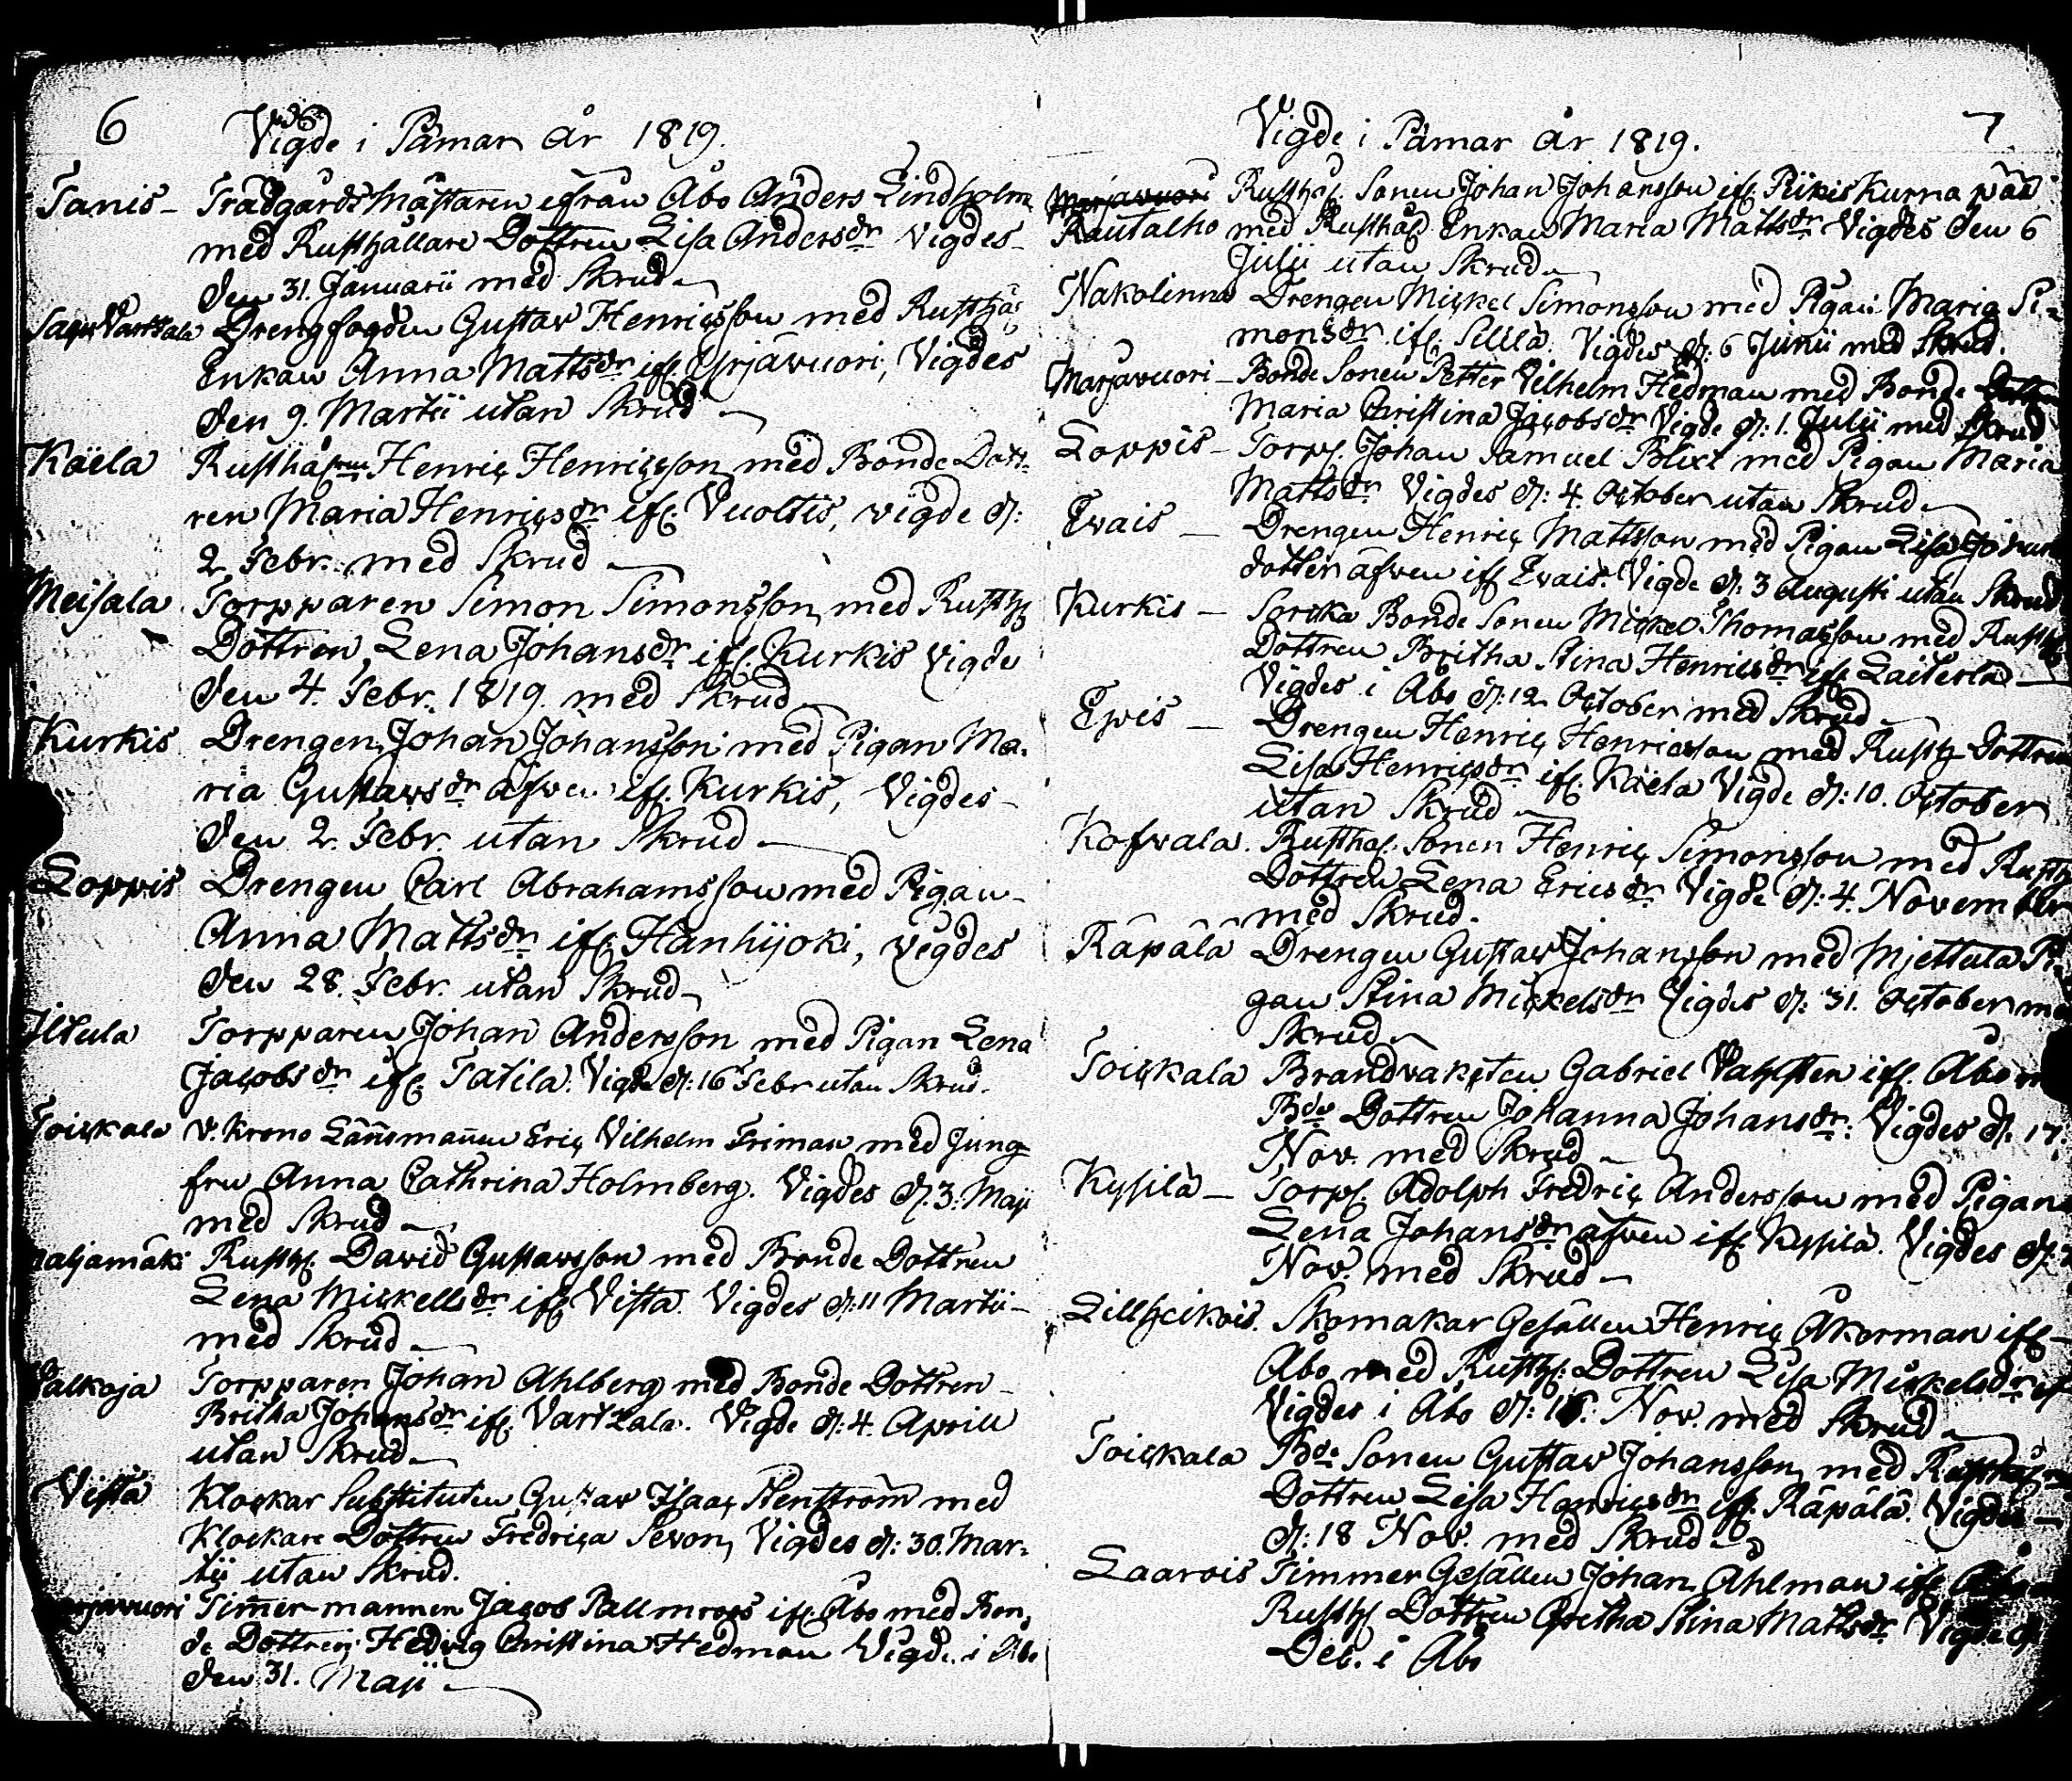 6
Vigde i Pämar År 1819.
Tanis – Trädgårds Mästaren ifrån Åbo Anders Lindholm
med Rusthållare Dottren Lisa Andersdr Vigdes
den 31. Januarii med Skrud
Vartsala Drengfogden Gustav Henricsson med Rusthål
Enkan Anna Mattsdr ifr. Yrjävuori, Vigdes
den 9. Martii utan Skrud
Käela Rusthål Henric Henricsson med Bonde Dott=
ren Maria Henricsdr ifr. Vuoltis, vigde d:
2 Febr. med Skrud
Meisala Torpparen Simon Simonsson med Rusth
Dottren Lena Johansdr ifr. Kurkis Vigde
den 4. Febr. 1819. med Skrud
Kurkis Drengen Johan Johansson med Pigan Ma-
ria Gustavsdr äfven ifr. Kurkis, Vigdes
den 2. Febr. utan Skrud
Loppis Drengen Carl Abrahamsson med Pigan
Anna Mattsdr ifr. Hanhijoki, Vigdes
den 28. Febr. utan Skrud
Iltula Torpparen Johan Andersson med Pigan Lena
Jacobsdr ifr. Tatila. Vigde d: 16 Febr utan Skrud.
Toiskala V. Krono Länsmannen Eric Vilhelm Friman med Jung
fru Anna Cathrina Holmberg. Vigdes d. 3. Maji
med Skrud
aljamäki Rusth. David Gustavsson med Bonde Dottren
Lena Mickellsdr ifr. Vista. Vigdes d: 11 Martii
med Skrud
Palkaja Torpparen Johan Ahlberg med Bonde Dottren
Britha Johansdr ifr. Vartsala. Vigde d: 4. Aprill
utan Skrud
Vista Klockar Substituten Gustav Isaac Stenström med
Klockare Dottren Fredrica Sevon, Vigdes d: 30. Mar-
tii utan Skrud.
arjavuori Timmermannen Jacob Pallmroos ifr. Åbo med Bon-
de Dottren Hedvig Christina Hedman Vigde i Åbo
den 31. Maji
7
Vigde i Pämar År 1819.
Marjavuori Rusthål. Sonen Johan Johansson ifr. Piikis Kurna
Rautalho med Rusthål Enkan Maria Mattsdr Vigdes den 6
Julii utan Skrud
Nakolinna Drengen Mickel Simonsson med Pigan Maria Si=
monsdr ifr. Vigdes d: 6 Junii med Skrud.
Marjavuori – Bonde Sonen Petter Vilhelm Hedman med Bonde Dottren
Maria Christina Jacobsdr Vigde d: 1. Julii med Skrud
Loppis – Torp. Johan Samuel Blixt med Pigan Maria
Mattsdr Vigdes d: 4. October utan Skrud
Evais – Drengen Henric Mattsson med Pigan Lisa
dotter äfven ifr Evais. Vigde d. 3 Augusti utan Skrud
Kurkis – Bonde Sonen Mickel Thomasson med Rusth
Dottren Britha Stina Henricsdr ifr Laiterla
Vigdes i Åbo d: 12 October med Skrud
Drengen Henric Henricsson med Rusth Dottren
Lisa Henricsdr ifr. Käela Vigde d: 10. October
utan Skrud
Kofvala. Rusthål. Sonen Henric Simonsson med Rusth
Dottren Lena Ericsdr Vigde d: 4. November
med Skrud.
Räpälä Drengen Gustav Johansson med Mjettula Pi-
gan Stina Mickelsdr Vigdes d: 31. October
Skrud
Toiskala Brandvakten Gabriel ifr. Åbo
Bde Dottren Johanna Johansdr: Vigdes d. 17.
Nov. med Skrud
Kysilä – Torp. Adolph Fredric Andersson med Pigan
Lena Johansdr äfven ifr Kysilä. Vigdes d:
Nov. med Skrud
Lillheikois. Skomakar Gesällen Henric Åkerman ifr
Åbo med Rusth. Dottren Lisa Mickelsdr
Vigdes i Åbo d: Nov. med Skrud
Toiskala Bde Sonen Gustav Johansson med
Dottren Lisa Henricsdr ifr. Räpälä. Vigdes
d: 18 Nov. med Skrud
Laarois Timmer Gesällen Johan Åhlman ifr
Rusth Dottren Gretha Stina Mattsdr Vigde d:
Dec. i Åbo